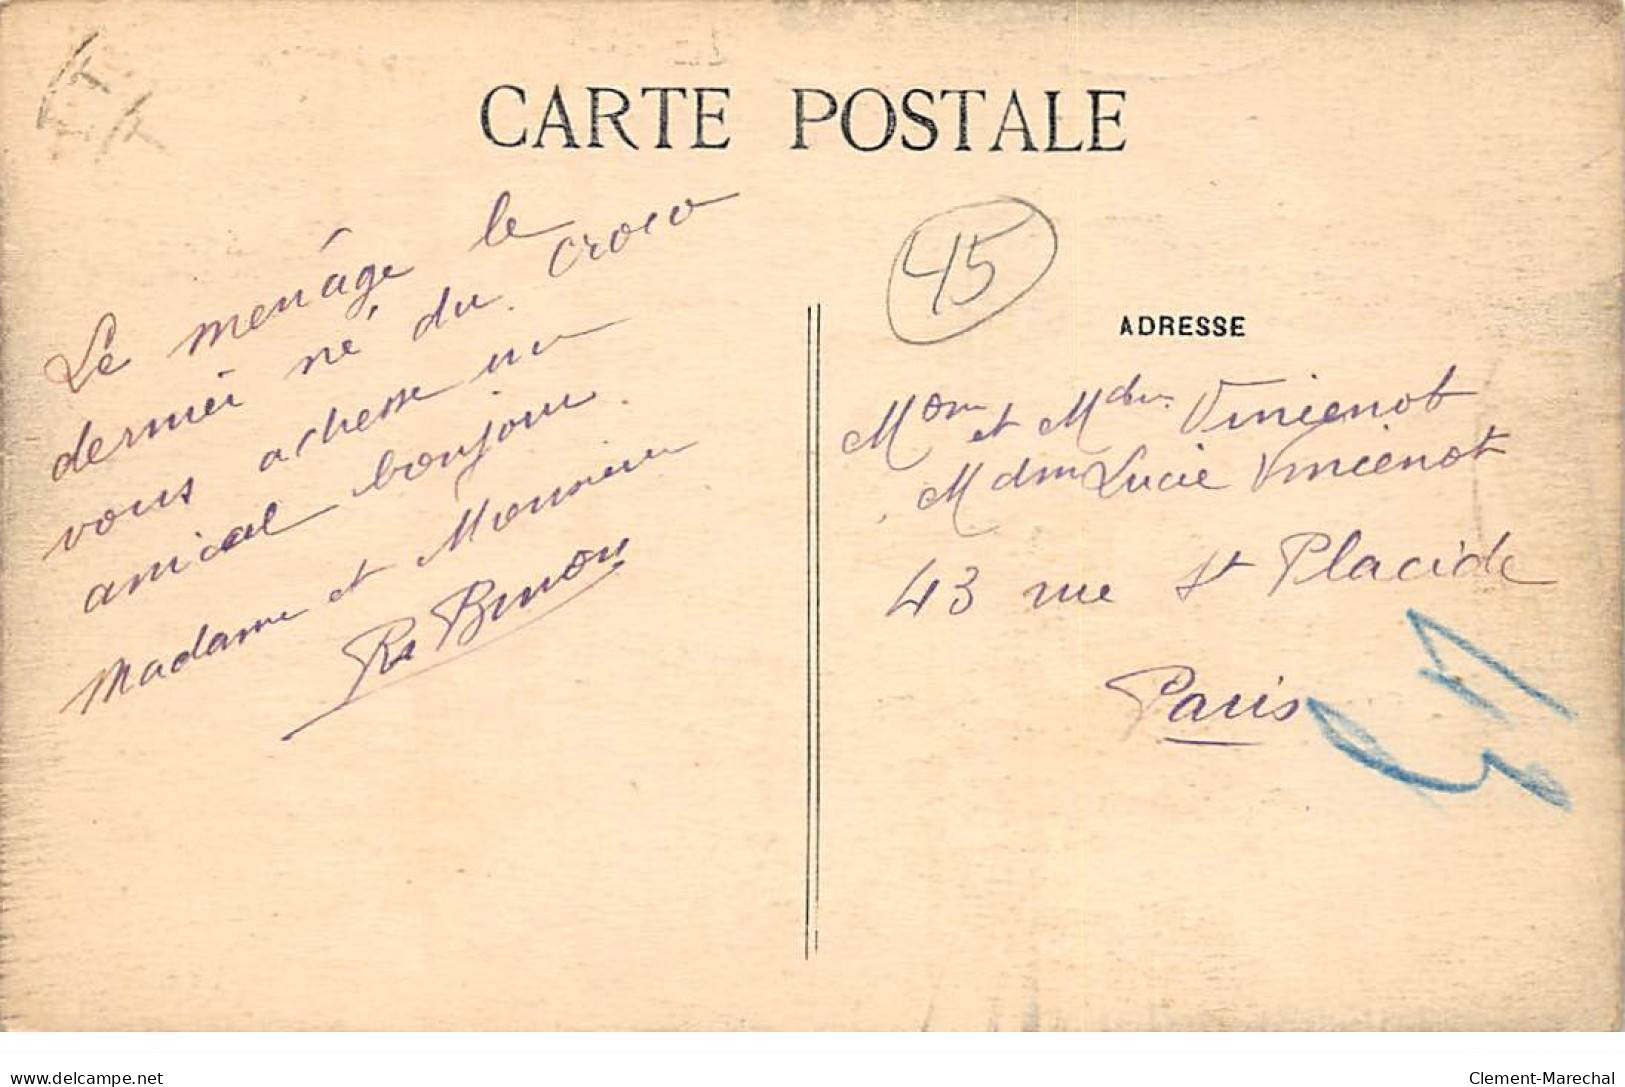 CARTE POSTALE
Le menage le
dernier né du croco
vous adresse un
amical bonjour.
Madame et Monsieur
45
ADRESSE
Mom et Mdm Vincenot
Mdm Lucie Vincenot
43 rue St Placide
Paris
delcampe.net
Clement-Marechal